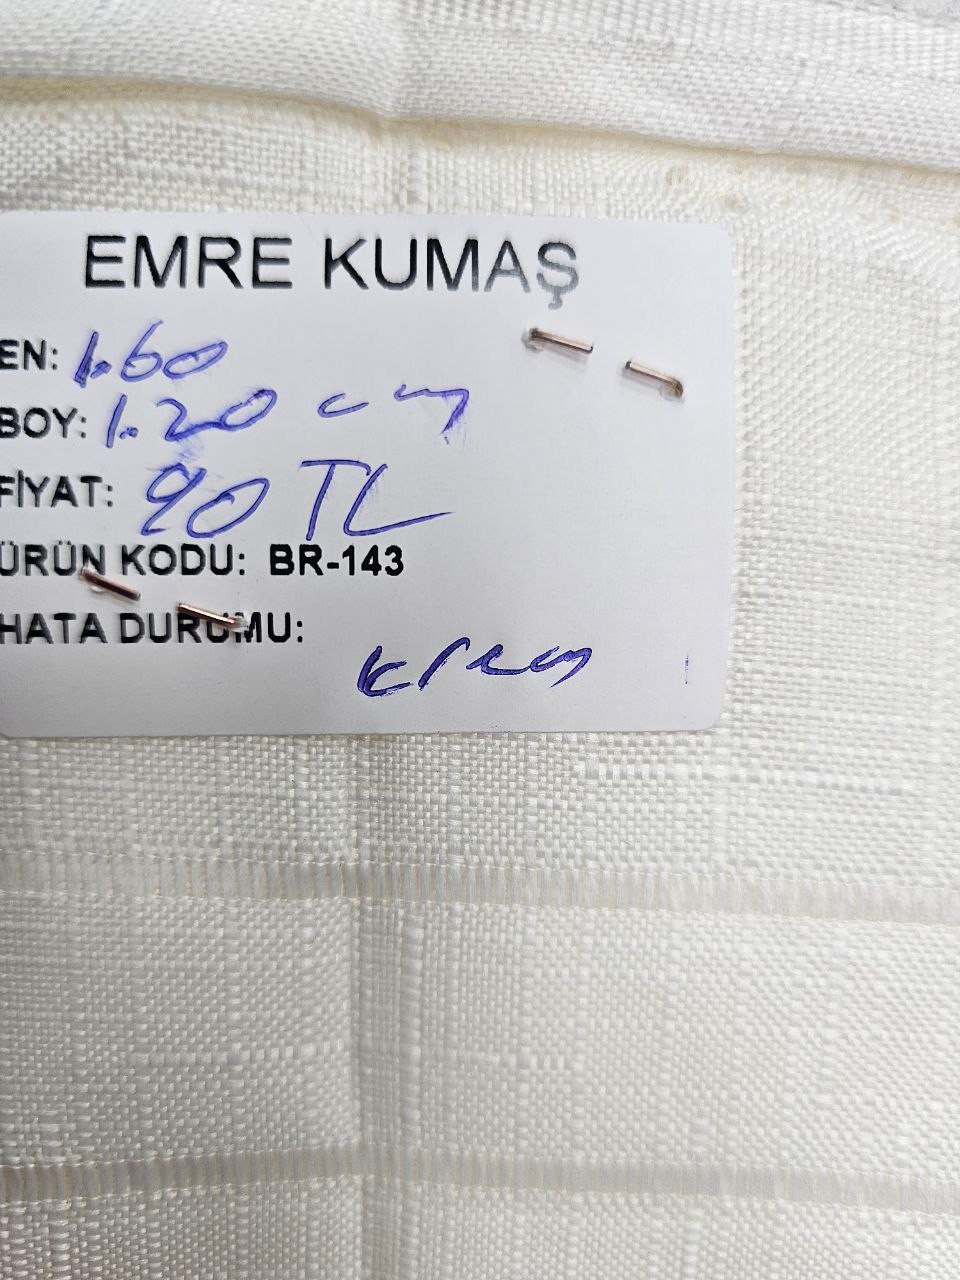 EMRE KUMAŞ
EN: 1.60
BOY: 1.20 cm
FİYAT: 90 TL
ÜRÜN KODU: BR-143
HATA DURUMU:
krem